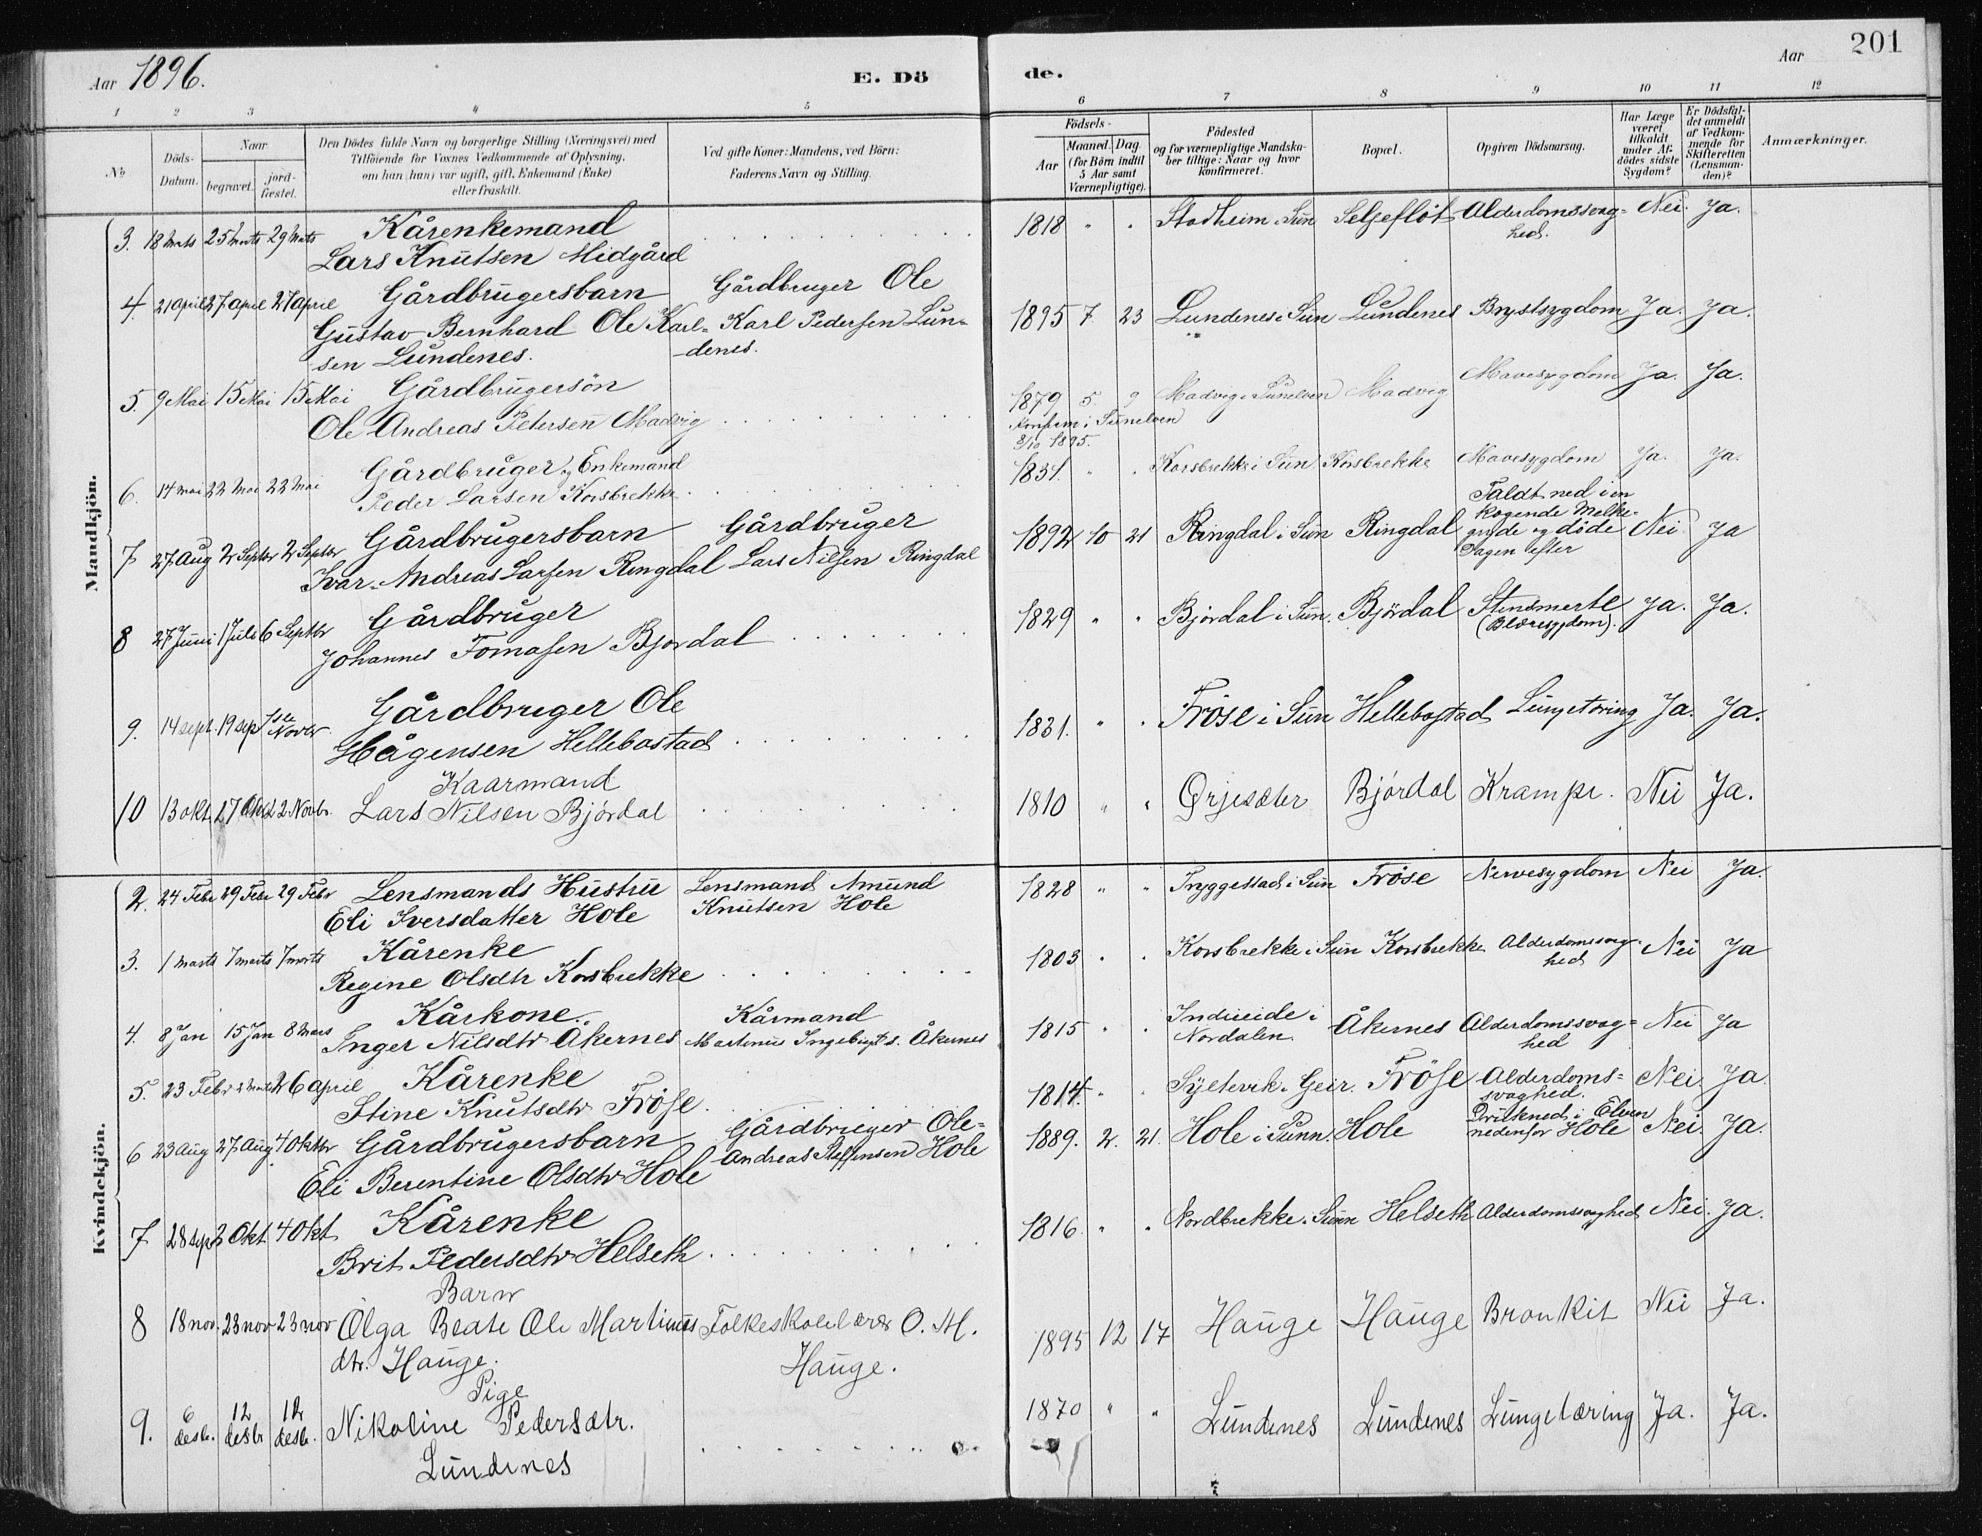 Aar 1896.
E. Dö
de.
Aar
201
1 2 3 4 5 6 7 8 9 10 11 12
No
Döds-Datum.
Naar
begravet.
jordfæstet.
Den Dödes fulde Navn og borgerlige Stilling (Næringsvei) med
Tilföiende for Voxnes Vedkommende af Oplysning,
om han (hun) var ugift, gift, Enkemand (Enke)
eller fraskilt.
Ved gifte Koner: Mandens, ved Börn:
Faderens Navn og Stilling.
Födsels-
Aar
Maaned. Dag.
(for Börn indtil
5 Aar samt
Værnepligtige).
Födested
og for værnepligtige Mandska-
ber tillige: Naar og hvor
konfirmeret.
Bopæl.
Opgiven Dödsaarsag.
Har Læge
været
tilkaldt
under Af-
dödes sidste
Sygdom?
Er Dödsfal-
det anmeldt
af Vedkom-
mende for
Skifteretten
(Lensman-
den)?
Anmærkninger.
Mandkjön.
3. 18 Marts 25 Marts 29 Marts Kårenkemand 1818 " " Stadheim i Sun Seljeflöt Alderdomssvag= Nei. Ja.
Lars Knutsen Midgård hed.
4. 21 april 27 april 27 april Gårdbrugersbarn Gårdbruger Ole 1895 7 23 Lundenes i Sun Lundenes Brystsygdom Ja. Ja.
Gustav Bernhard Ole Karl= Karl Pedersen Lun=
sen Lundenes. denes.
5. 9 Mai 15 Mai 15 Mai Gårdbrugersön 1879 5. 9 Madvig i Sunelven Madvig Mavesygdom Ja. Ja.
Ole Andreas Petersen Madvig Konfirm i Sunelven
8/10 1895.
6. 14 mai 22 Mai 22 Mai Gårdbruger og Enkemand 1831. " " Korsbrekke i Sun Korsbrekke Mavesygdom Ja. Ja.
Peder Larsen Korsbrekke
7 27 Aug 2 Septbr 2 Septbr Gårdbrugersbarn Gårdbruger 1892 10 21 Ringdal i Sun Ringdal Faldt ned i en Nei Ja
Ivar Andreas Larsen Ringdal Lars Nilsen Ringdal kogende Melke-
gryde og döde
Dagen efter
8 27 Juni 1 Juli 6 Septbr Gårdbruger 1829 " " Bjordal i Sun. Bjørdal Stensmerte Ja. Ja.
Johannes Tomasen Bjordal (Blæresygdom).
9. 14 sept. 19 sep 1ste Novbr Gårdbruger Ole 1831. " " Frøse i Sun Hellebostad Lungetæring Ja. Ja.
Hågensen Hellebostad
10 13 okt 27 Okt 22 Novbr. Kaarmand 1810 " " Ørjesæter Bjørdal Krampe. Nei Ja.
Lars Nilsen Bjørdal
Kvindekjön.
2. 24 Febr 29 Febr 29 Febr Lensmands Hustru Lensmand Amund 1828 " " Tryggestad i Sun Frøse Nervesygdom Nei Ja.
Eli Iversdatter Hole Knutsen Hole
3. 1 marts 7 marts 7 marts Kårenke 1803 " " Korsbrekke i Sun Korsbrekke Alderdomssvag- Nei Ja
Regine Olsdtr Korsbrekke hed
4. 8 Jan 15 Jan 8 Mars Kårkone. Kårmand 1815 " " Indreeide i Åkernes Alderdomssvag= Nei Ja
Inger Nilsdtr Åkernes Martinus Ingebrigts. Åkernes Nordalen. hed
5. 23 Febr 26 april Kårenke 1814. " " Syltevik i Geir. Frøse Alderdoms= Nei. Ja.
Stine Knutsdtr Frøse. svaghed.
6 23 Aug 27 Aug 4 Oktbr Gårdbrugersbarn Gårdbruger Ole= 1889. 2. 21. Hole i Sunn. Hole Drukned i Elven Nei. Ja.
Eli Berentine Olsdtr Hole Andreas Steffensen Hole nedenfor Hole
7 28 sept 2 Okt 4 Okt Kårenke 1816 " " Nordbrekke i Sunn Helseth Alderdomssvaghed Nei. Ja.
Brit Pedersdtr Helseth
8 18 nov. 23 nov 23 nov Barn 1895 12 17 Hauge Hauge Bronkit Nei Ja.
Olga Beate Ole Martinus Folkeskolelærer O. M.
dtr. Hauge. Hauge.
9. 6 desb. 12 desbr desb. Pige 1870 " " Lundenes Lundenes Lungetæring Ja. Ja.
Nikoline Pedersdtr.
Lundenes